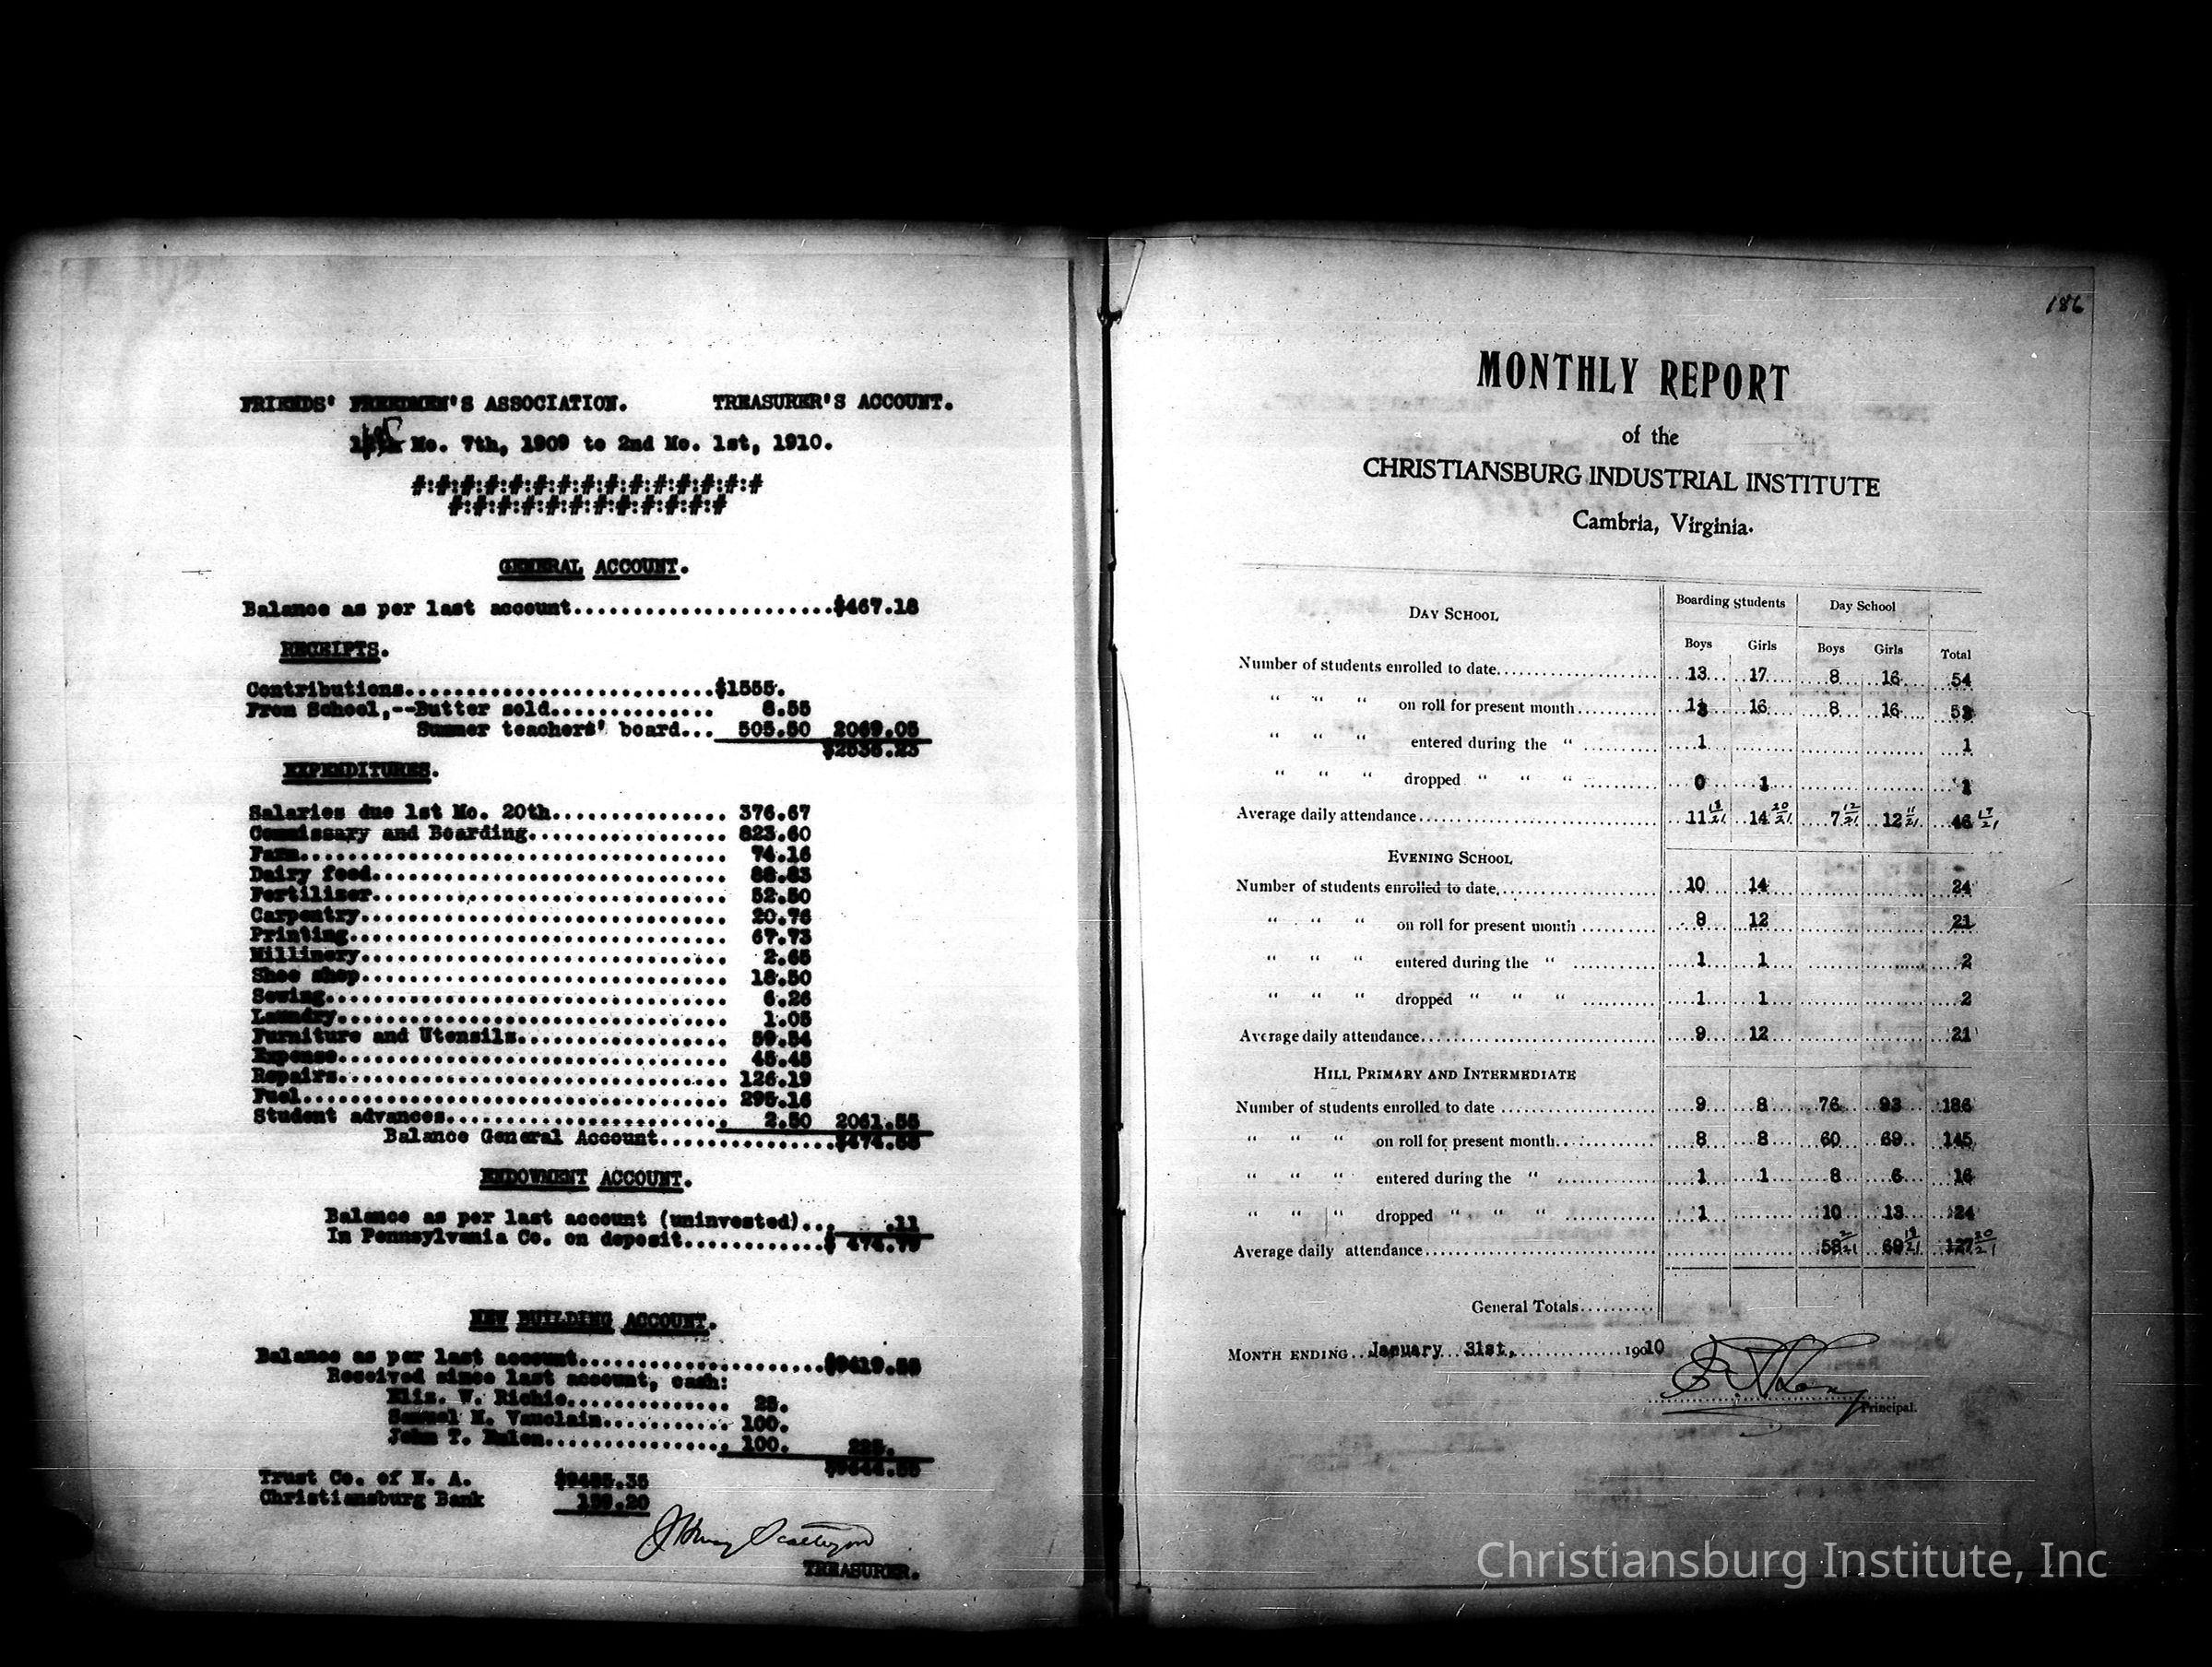 FRIENDS' FREEDMEN'S ASSOCIATION. TREASURER'S ACCOUNT.
Mo. 7th, 1909 to 2nd Mo. 1st, 1910.
#:#:#:#:#:#:#:#:#:#:#:#:#:#:#
#:#:#:#:#:#:#:#:#:#:#:#
GENERAL ACCOUNT.
Balance as per last account......................$467.18
RECEIPTS.
Contributions..........................$1555.
From School,--Butter sold............... 8.55
Summer teachers' board... 505.50 2069.05
$2536.23
EXPENDITURES.
Salaries due 1st Mo. 20th............... 376.67
Commissary and Boarding................. 823.60
Farm.................................... 74.16
Dairy feed.............................. 88.83
Fertilizer.............................. 52.50
Carpentry............................... 20.76
Printing................................ 67.73
Millinery............................... 2.65
Shoe shop............................... 18.50
Sewing.................................. 6.26
Laundry................................. 1.05
Furniture and Utensils.................. 59.54
Expense................................. 45.45
Repairs................................. 126.19
Fuel.................................... 295.16
Student advances........................ 2.50 2061.55
Balance General Account...............$474.68
ENDOWMENT ACCOUNT.
Balance as per last account (uninvested)... .11
In Pennsylvania Co. on deposit............$ 474.79
NEW BUILDING ACCOUNT.
Balance as per last account.....................$9419.55
Received since last account, cash:
Eliz. W. Richie.............. 25.
Samuel M. Vauclain........... 100.
John T. Emlen................ 100. 225.
$9644.55
Trust Co. of N. A. $9485.35
Christiansburg Bank 159.20
J Henry Scattergood
TREASURER.
186
MONTHLY REPORT
of the
CHRISTIANSBURG INDUSTRIAL INSTITUTE
Cambria, Virginia.
Boarding Students Day School
DAY SCHOOL
Boys Girls Boys Girls Total
Number of students enrolled to date 13 17 8 16 54
" " " on roll for present month 16 8 16
" " " entered during the " 1 1
" " " dropped " " " 0 1 1
Average daily attendance 11 13/21 14 20/21 7 12/21 12 11/21 46
EVENING SCHOOL
Number of students enrolled to date 10 14 24
" " " on roll for present month 8 12 21
" " " entered during the " 1 1 2
" " " dropped " " " 1 1 2
Average daily attendance 9 12 21
HILL PRIMARY AND INTERMEDIATE
Number of students enrolled to date 9 8 76 93 186
" " " on roll for present month 8 8 60 69 145
" " " entered during the " 1 1 8 6 16
" " " dropped " " " 1 10 13 24
Average daily attendance 58 2/21 69 127 20/21
General Totals
MONTH ENDING January 31st, 1910
Principal.
Christiansburg Institute, Inc